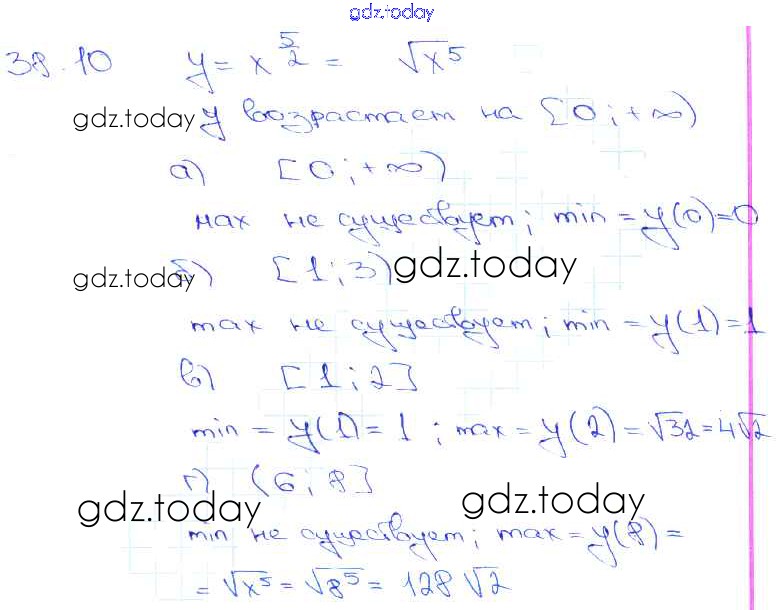 gdz.today
38.10 y = x^(5/2) = √x⁵
gdz.today y возрастает на [0; +∞)
а) [0; +∞)
мах не существует; min = y(0) = 0
gdz.today б) [1; 3) gdz.today
max не существует; min = y(1) = 1
в) [1; 2]
min = y(1) = 1 ; max = y(2) = √32 = 4√2
г) (6; 8]
gdz.today gdz.today
min не существует; max = y(8) =
= √x⁵ = √8⁵ = 128√2